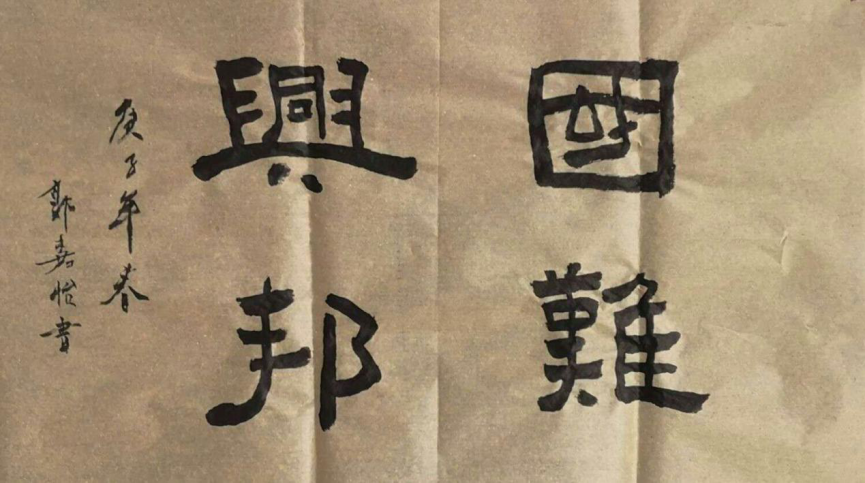 國難
興邦
庚子年春
郭嘉怡書